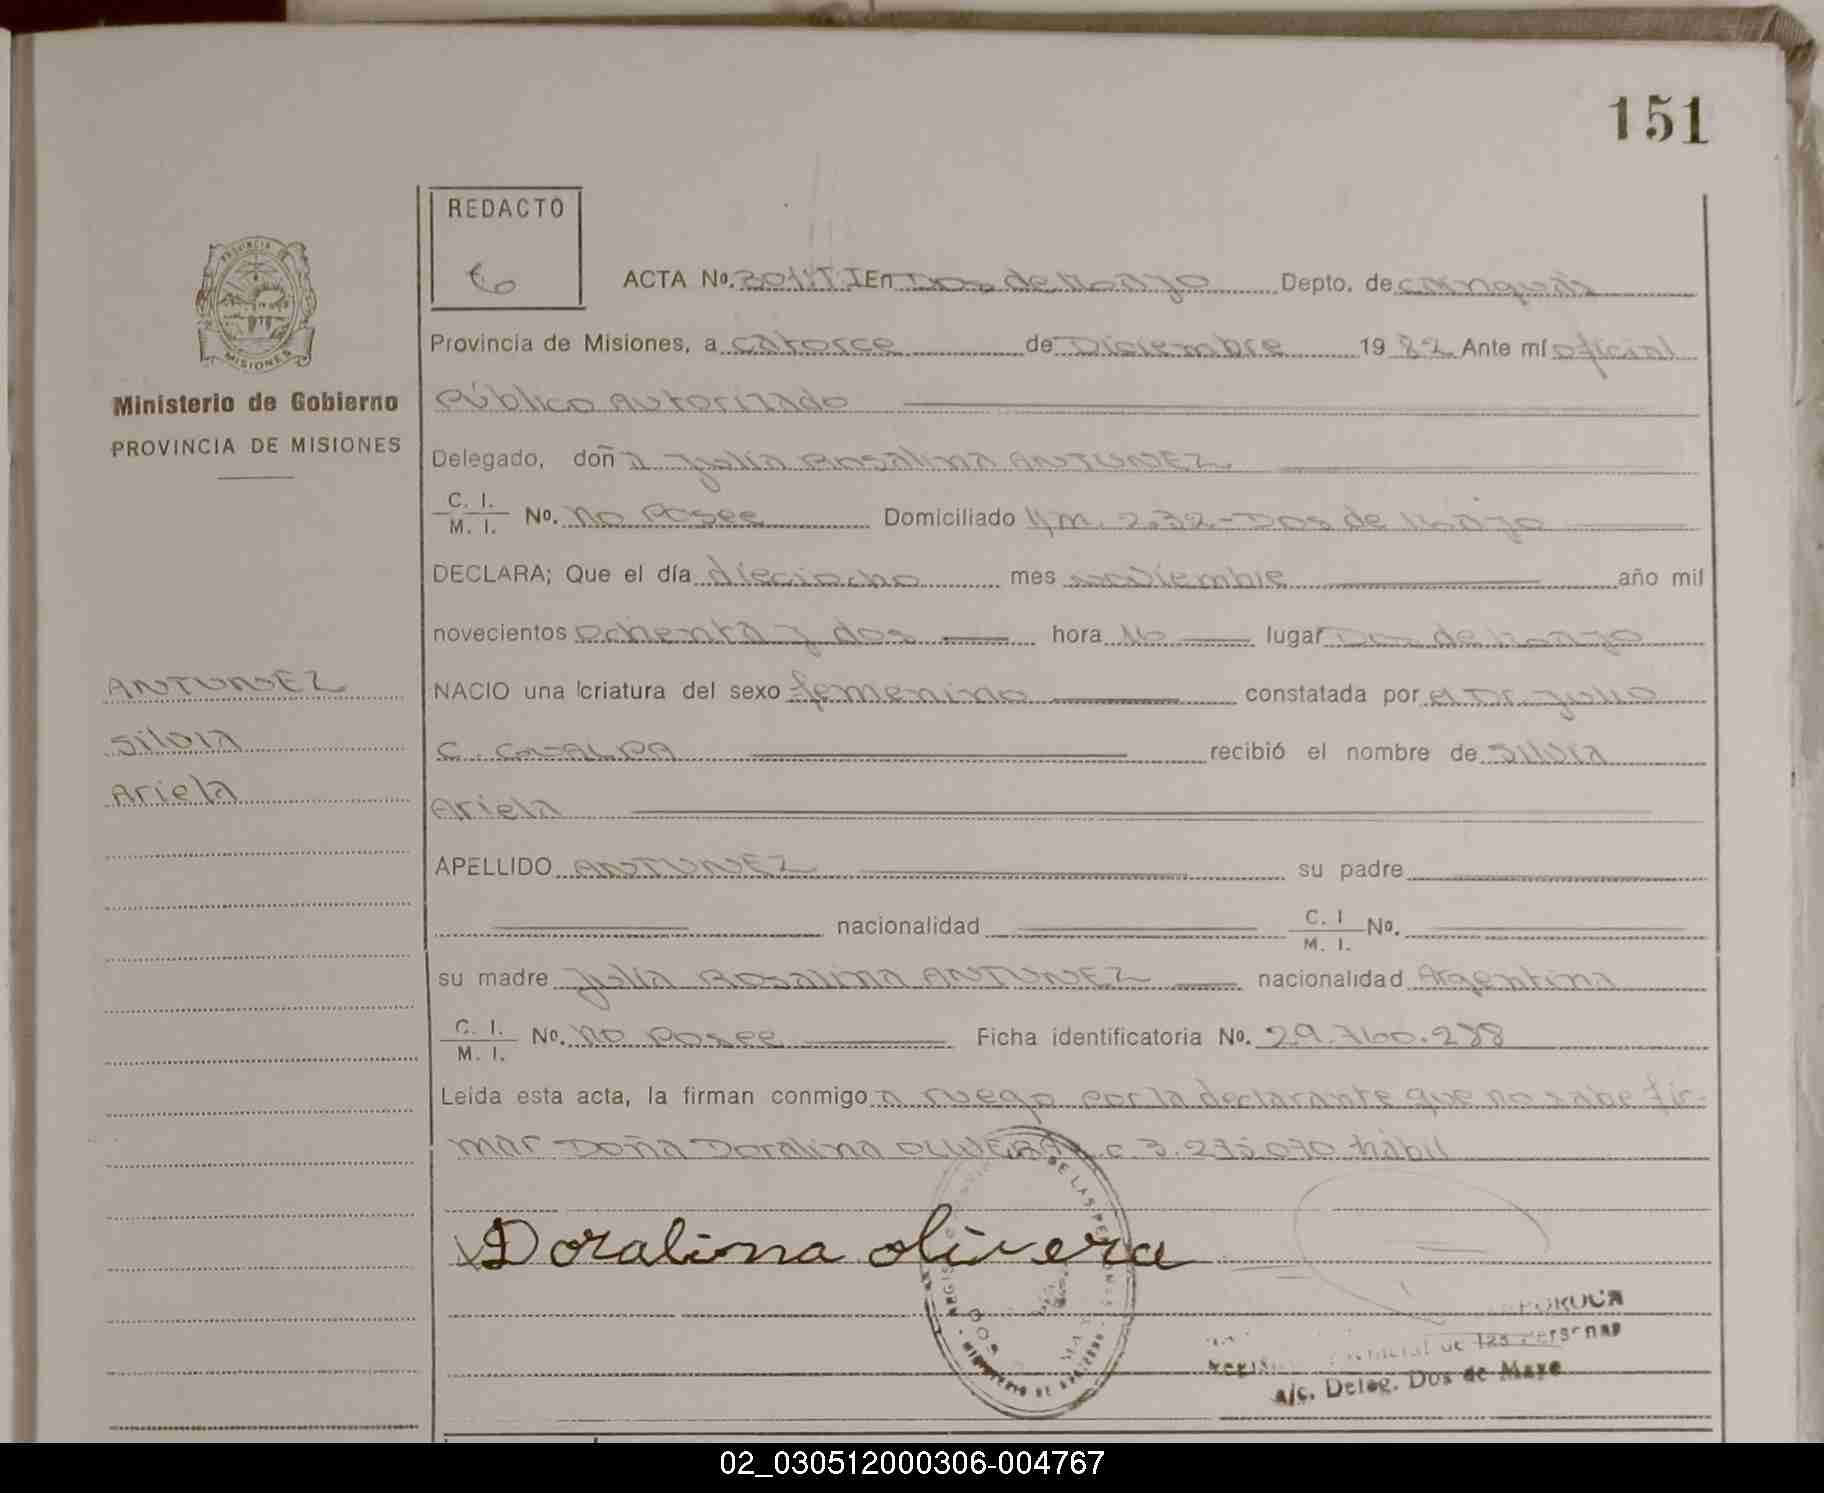 151
REDACTO
PROVINCIA DE
MISIONES
ACTA No. 301 T I En Dos de Mayo Depto. de Cainguás
Provincia de Misiones, a catorce de Diciembre 1982 Ante mí oficial
Ministerio de Gobierno
Público Autorizado
PROVINCIA DE MISIONES
Delegado, doña Julia Rosalina ANTUNEZ
C. I.
M. I. No. No Posee Domiciliado Km. 232-Dos de Mayo
DECLARA; Que el día dieciocho mes noviembre año mil
novecientos ochenta y dos hora lugar Dos de Mayo
ANTUNEZ
Silvia
Ariela
NACIO una criatura del sexo femenino constatada por el Dr. Julio
C. recibió el nombre de Silvia
Ariela
APELLIDO ANTUNEZ su padre
nacionalidad C. I
M. I. No.
su madre Julia Rosalina ANTUNEZ nacionalidad Argentina
C. I.
M. I. No. No Posee Ficha identificatoria No. 29.760.288
Leída esta acta, la firman conmigo a ruego por la declarante que no sabe fir-
mar Doña Doralina OLIVERA c. 3.275.070 hábil
Doralina olivera
DE LAS PE
a/c. Deleg. Dos de Mayo
02_030512000306-004767